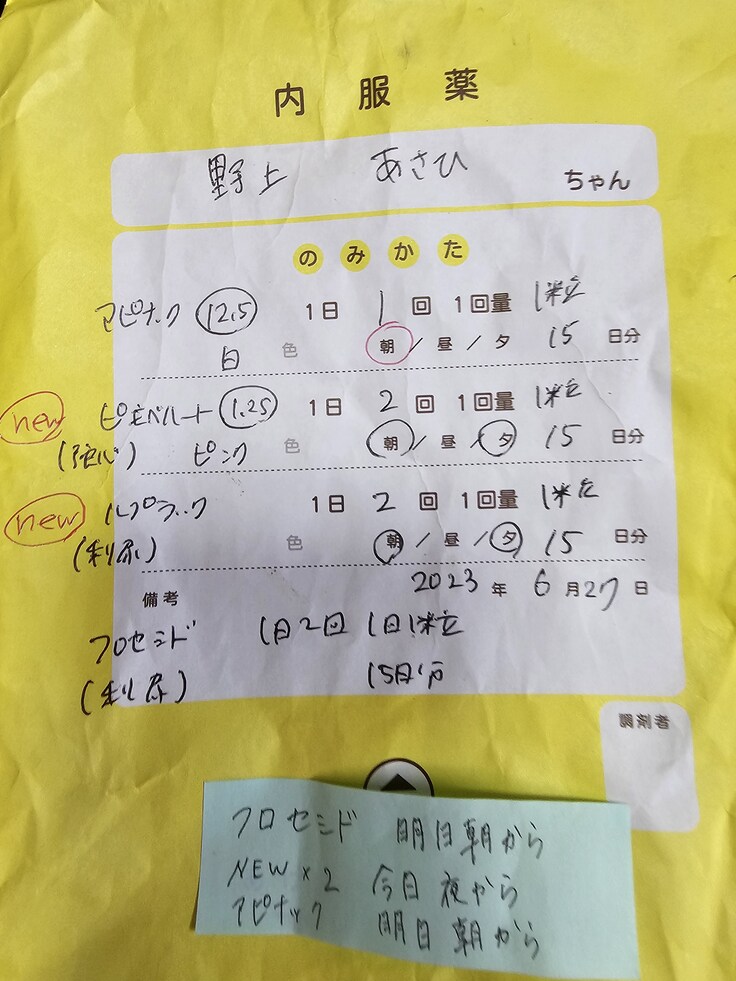 内服薬
野上 あさひ ちゃん
のみかた
アピナック 12.5 1日 1 回 1回量 1粒
白 色 朝 / 昼 / 夕 15 日分
new ピモベハート 1.25 1日 2 回 1回量 1粒
(強心) ピンク 色 朝 / 昼 / 夕 15 日分
new ルプラック 1日 2 回 1回量 1粒
(利尿) 色 朝 / 昼 / 夕 15 日分
備考 2023 年 6 月 27 日
フロセミド 1日2回 1日1粒
(利尿) 15日分
調剤者
フロセミド 明日朝から
NEW×2 今日夜から
アピナック 明日朝から